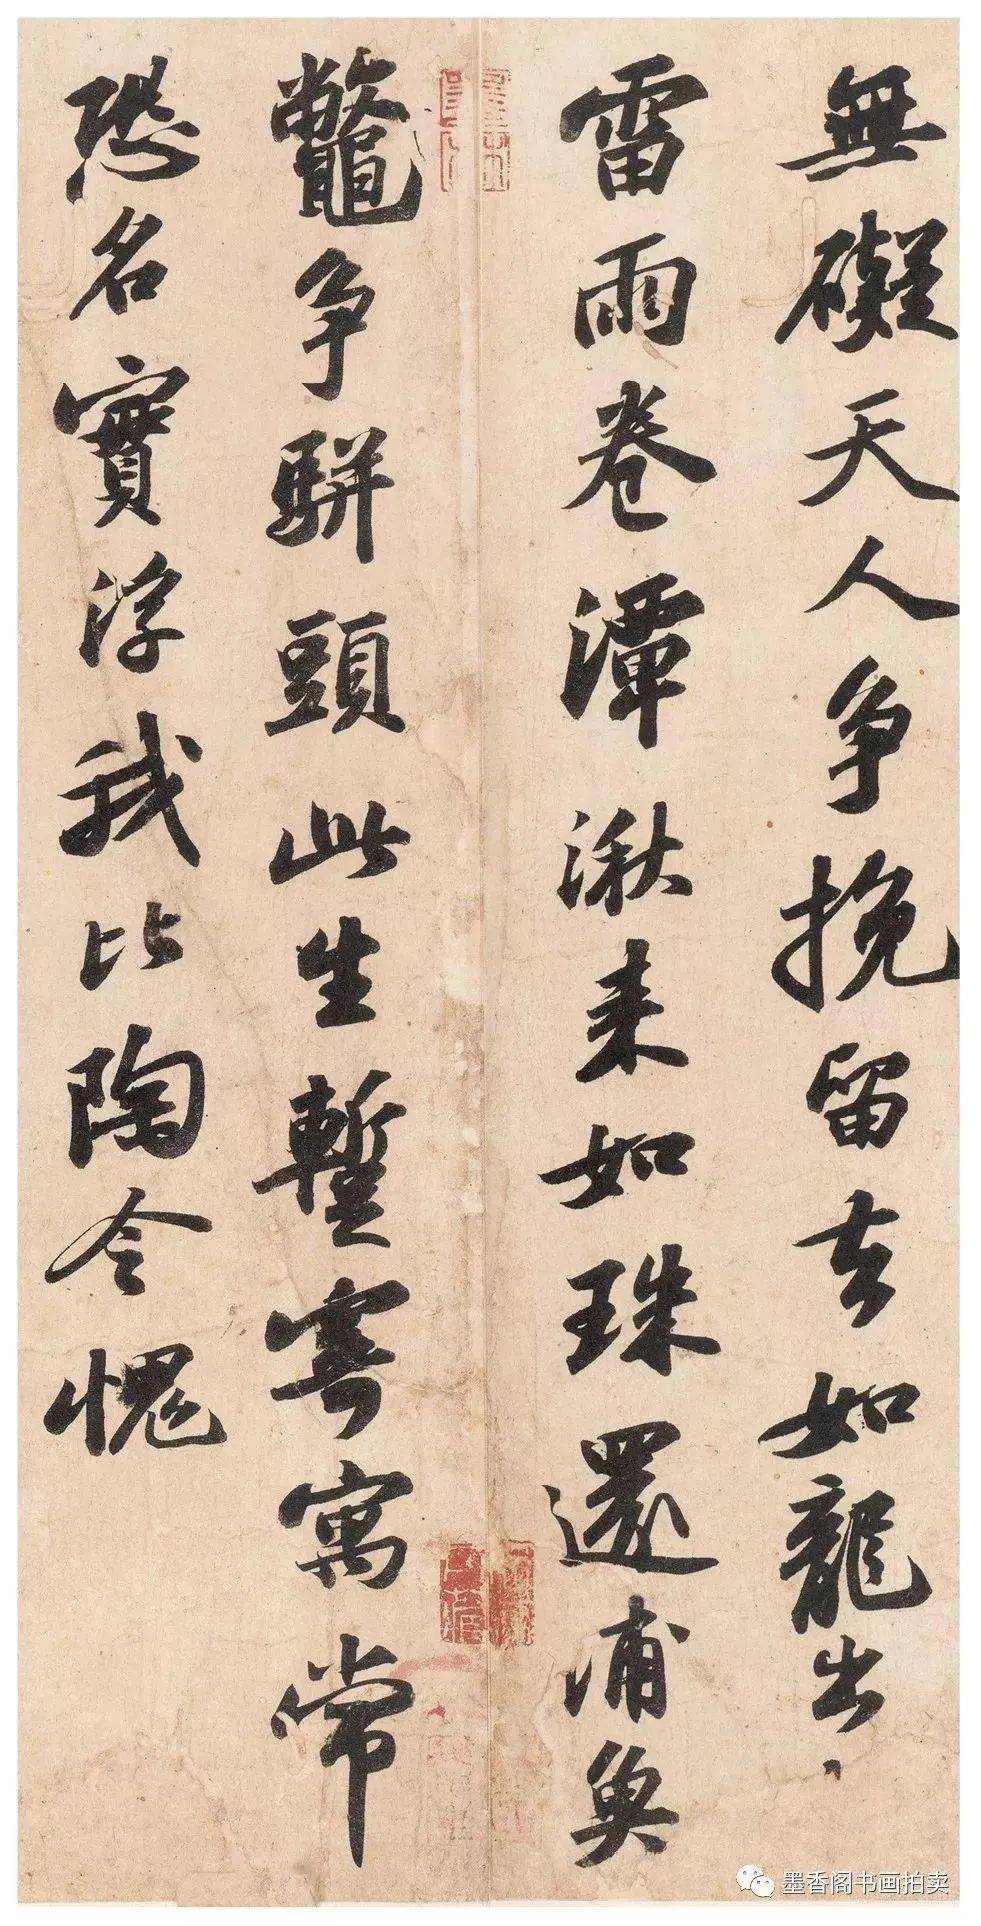 無礙天人争挽留去如龍出
雷雨卷潭湫来如珠還浦魚
鼈争駢頭此生暫寄寓常
恐名實浮我比陶令愧
墨香阁书画拍卖